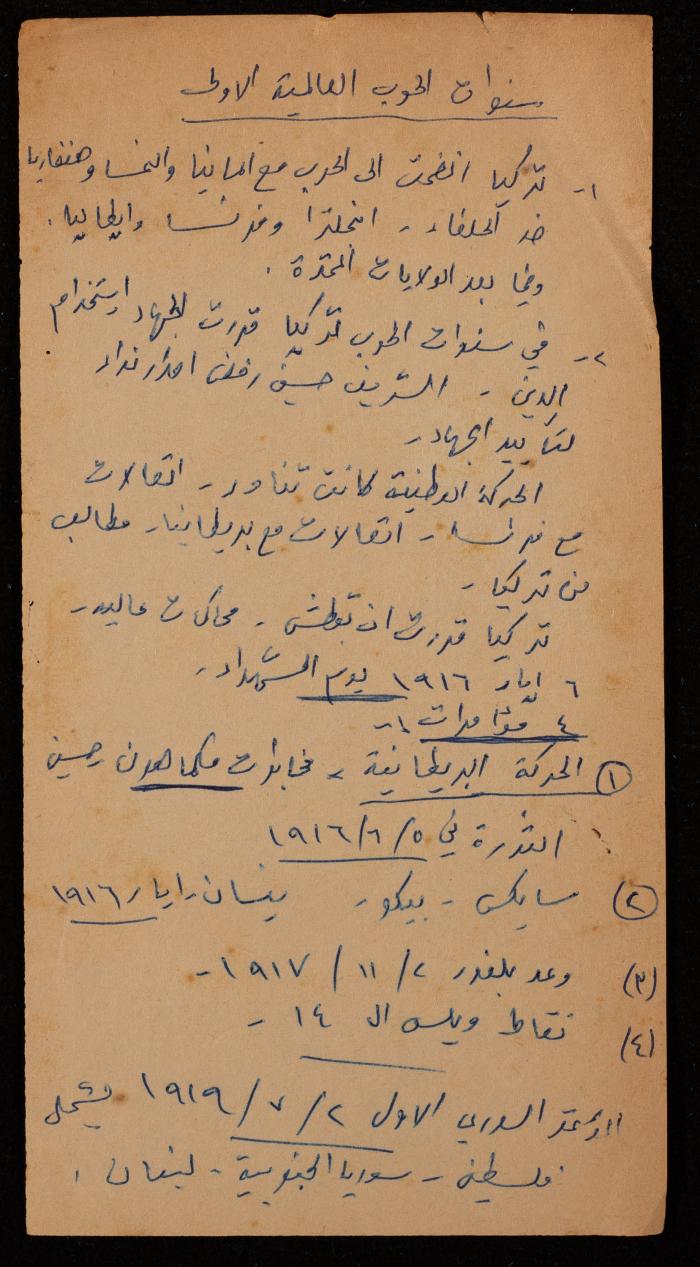 سنوات الحرب العالمية الاولى
١- تركيا انضمت الى الحرب مع المانيا والنمسا وهنغاريا
ضد الحلفاء - انجلترا وفرنسا وايطاليا .
وفيما بعد الولايات المتحدة .
٢- في سنوات الحرب تركيا قررت الجهاد استخدام
الدين - الشريف حسين رفض اصدار نداء
لتأييد الجهاد -
الحركة الوطنية كانت تناور - اتصالات
مع فرنسا - اتصالات مع بريطانيا - مطالب
من تركيا -
تركيا قررت ان تبطش - محاكمات عاليه -
٦ ايار ١٩١٦ يوم الشهداء -
٤ مؤامرات -
(١) الحركة البريطانية - مخابرات مكماهون حسين
الثورة في ٥/٦/١٩١٦
(٢) سايكس - بيكو - نيسان - ايار ١٩١٦
(٣) وعد بلفور ٢/١١/١٩١٧ -
(٤) نقاط ويلسن ال ١٤ -
المؤتمر السوري الاول ٢/٧/١٩١٩ يشمل
فلسطين - سوريا الجنوبية - لبنان .